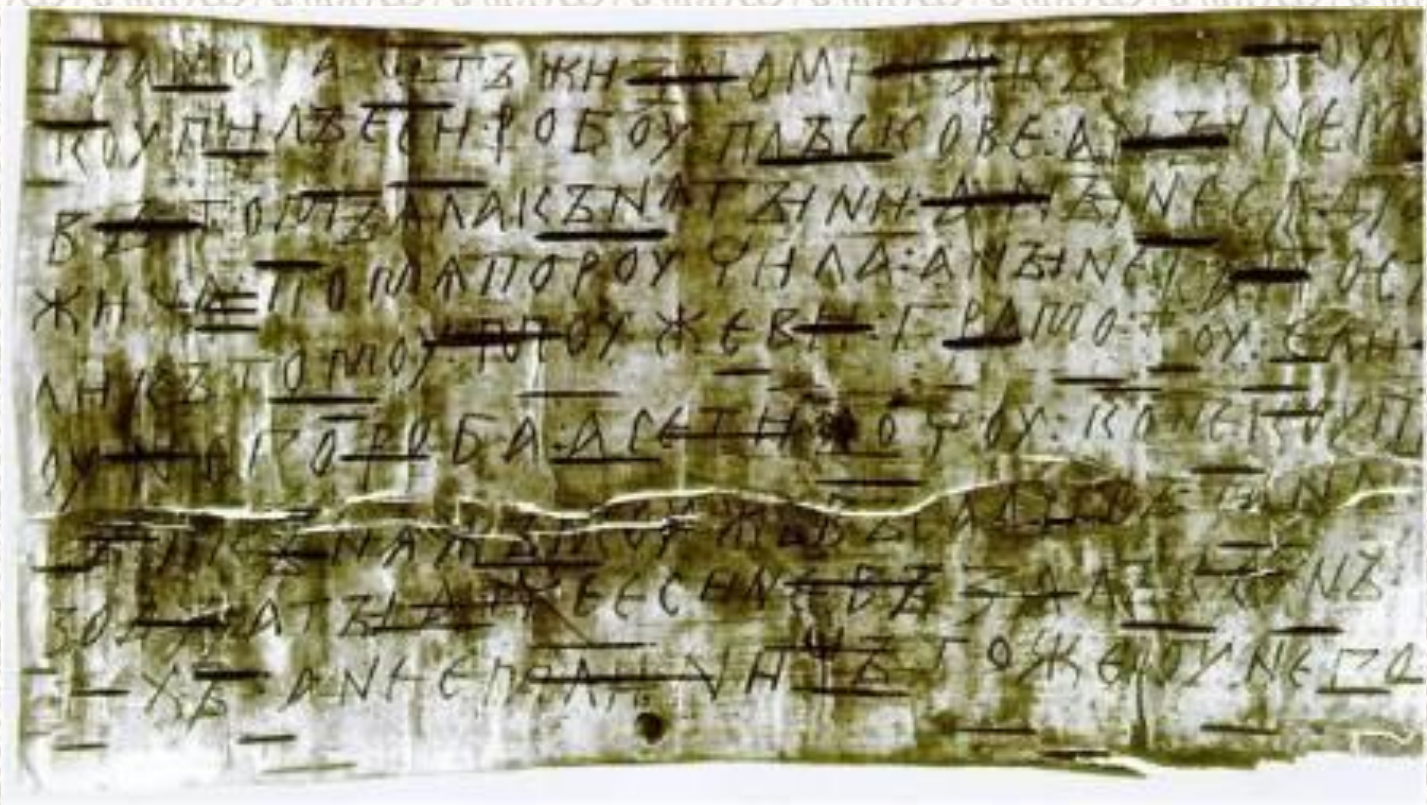 грамота ѡтъ жизномира къ
коупилъ еси робоу плъскове а ныне
въ томъ ѧла кънѧгыни а ныне сѧ
жина по мѧ пороучила а ныне ка
ли къ томоу моужеви грамотоу ели
оу него роба а се ти хочоу коне
и кънѧжъ моужъ въсадивъ та на
воды а ты атче еси не възалъ коунъ
техъ а не емли ничъто же оу него